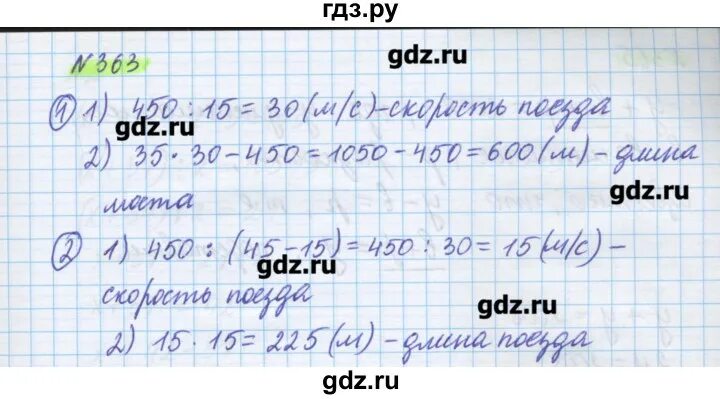 гдз.ру
№363
gdz.ru
① 1) 450 : 15 = 30 (м/с) – скорость поезда
gdz.ru
2) 35 · 30 – 450 = 1050 – 450 = 600 (м) – длина
gdz.ru
моста
② 1) 450 : (45 – 15) = 450 : 30 = 15 (м/с) –
gdz.ru
скорость поезда
gdz.ru
2) 15 · 15 = 225 (м) – длина поезда
gdz.ru
gdz.ru